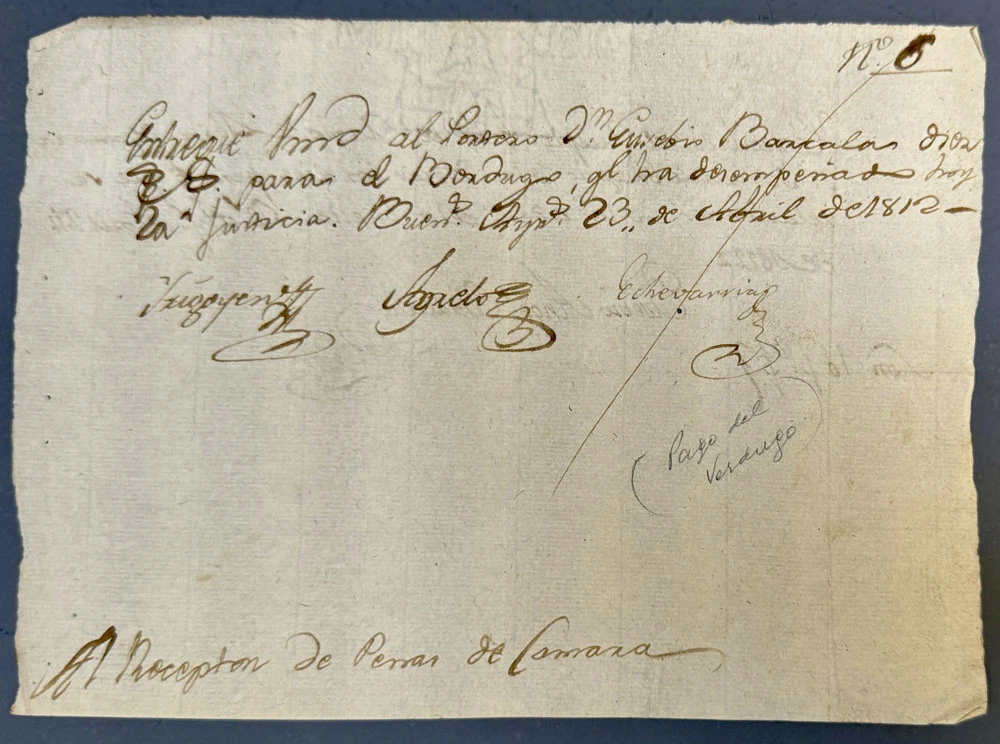 N.º 6
Entregue Vmd al Portero Dn. Eusebio Barcala diez
p.s f.s para el Berdugo, q.e ha desempeñado hoy
la Justicia. Buen.s Ayr.s 23,, de Abril de 1812 —
Yrigoyen Agrelo Echevarria
(Pago del
Verdugo)
Al Receptor de Penas de Camara